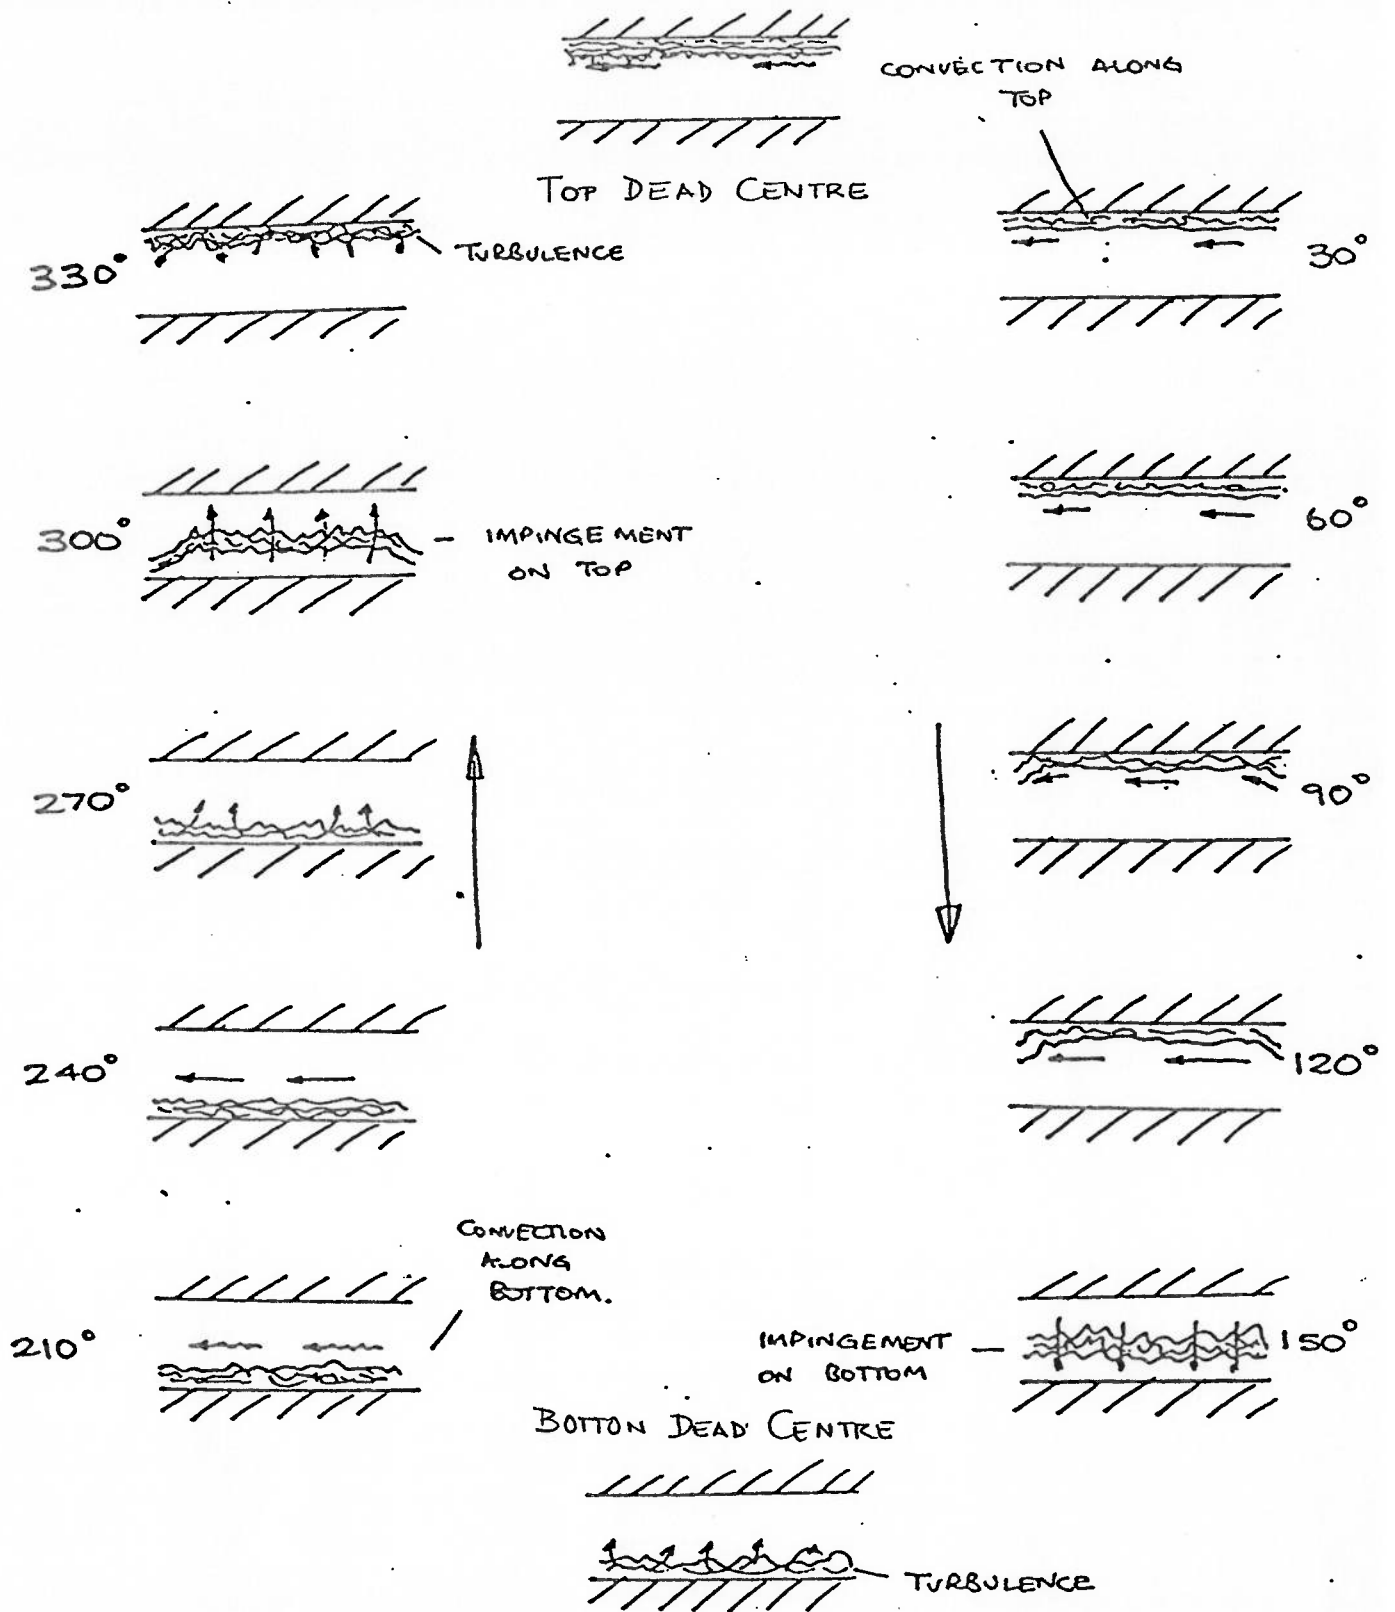 CONVECTION ALONG
TOP
TOP DEAD CENTRE
330°
TURBULENCE
30°
300°
IMPINGEMENT
ON TOP
60°
270°
90°
240°
120°
CONVECTION
ALONG
BOTTOM.
210°
IMPINGEMENT
ON BOTTOM
150°
BOTTON DEAD CENTRE
TURBULENCE